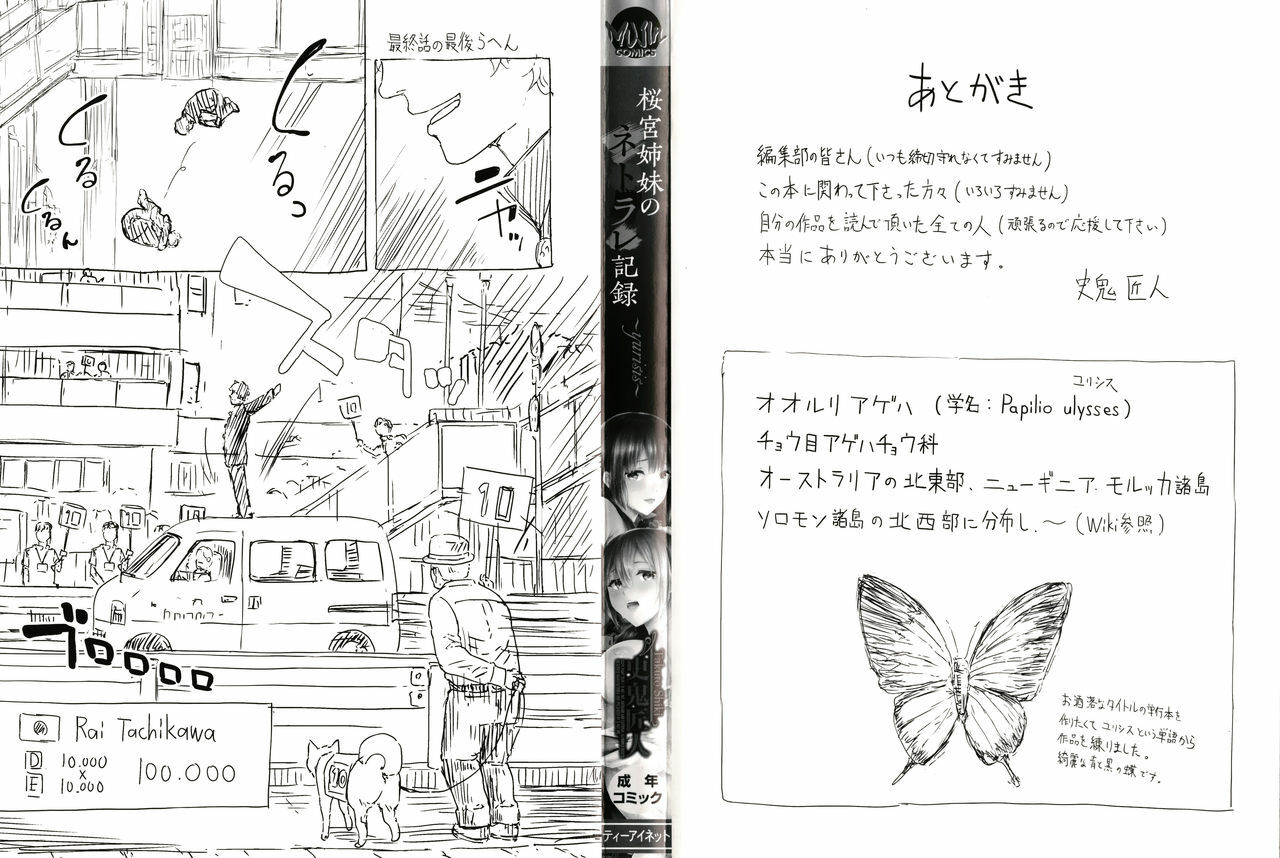 最終話の最後らへん
くるん
くる
くるっ
ニヤッ
10
10
10
10
10
ゴロロロロ
Rai Tachikawa
D 10.000
×
E 10.000
100.000
10
MUJIN
COMICS
桜宮姉妹の
ネトラレ記録
~yurisis~
史鬼匠人
Takuto Shiki
成年
コミック
ティーアイネット
あとがき
編集部の皆さん(いつも締切守れなくてすみません)
この本に関わって下さった方々(いろいろすみません)
自分の作品を読んで頂いた全ての人(頑張るので応援して下さい)
本当にありがとうございます。
史鬼 匠人
ユリシス
オオルリアゲハ (学名:Papilio ulysses)
チョウ目アゲハチョウ科
オーストラリアの北東部、ニューギニア、モルッカ諸島
ソロモン諸島の北西部に分布し、〜(Wiki参照)
お洒落なタイトルの単行本を
作りたくて ユリシスという単語から
作品を練りました。
綺麗な青と黒の蝶です。